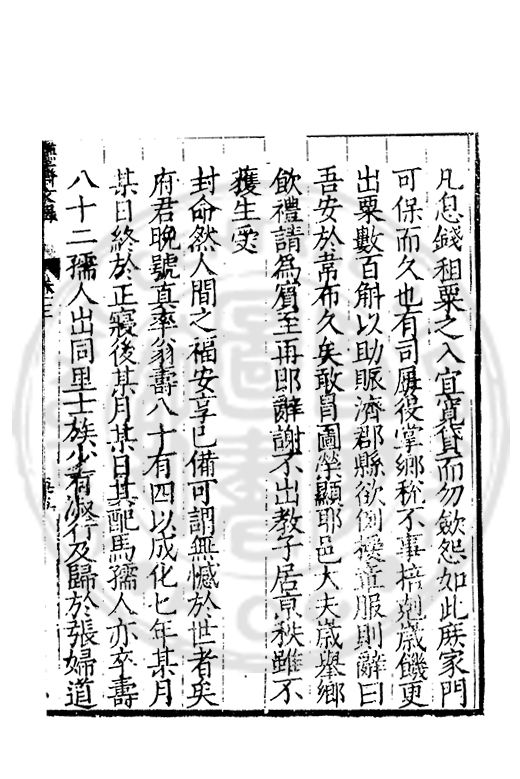 凡息錢租粟之入宜寬貸而勿歛怨如此庶家門
可保而久也有司屬後掌鄉稅不事掊剋歲饑更
出粟數百斛以助賑濟郡縣欲例授章服則辭曰
吾安於韋布久矣敢冒圖榮顯耶邑大夫歲舉鄉
飲禮請為賓至再即辭謝不出教子居京秩雖不
獲生受
封命然人間之福安享已備可謂無憾於世者矣
府君晚號真率翁壽八十有四以成化七年某月
某日終於正寢後某月某日其配馬孺人亦卒壽
八十二孺人出同里士族少有淑行及歸於張婦道